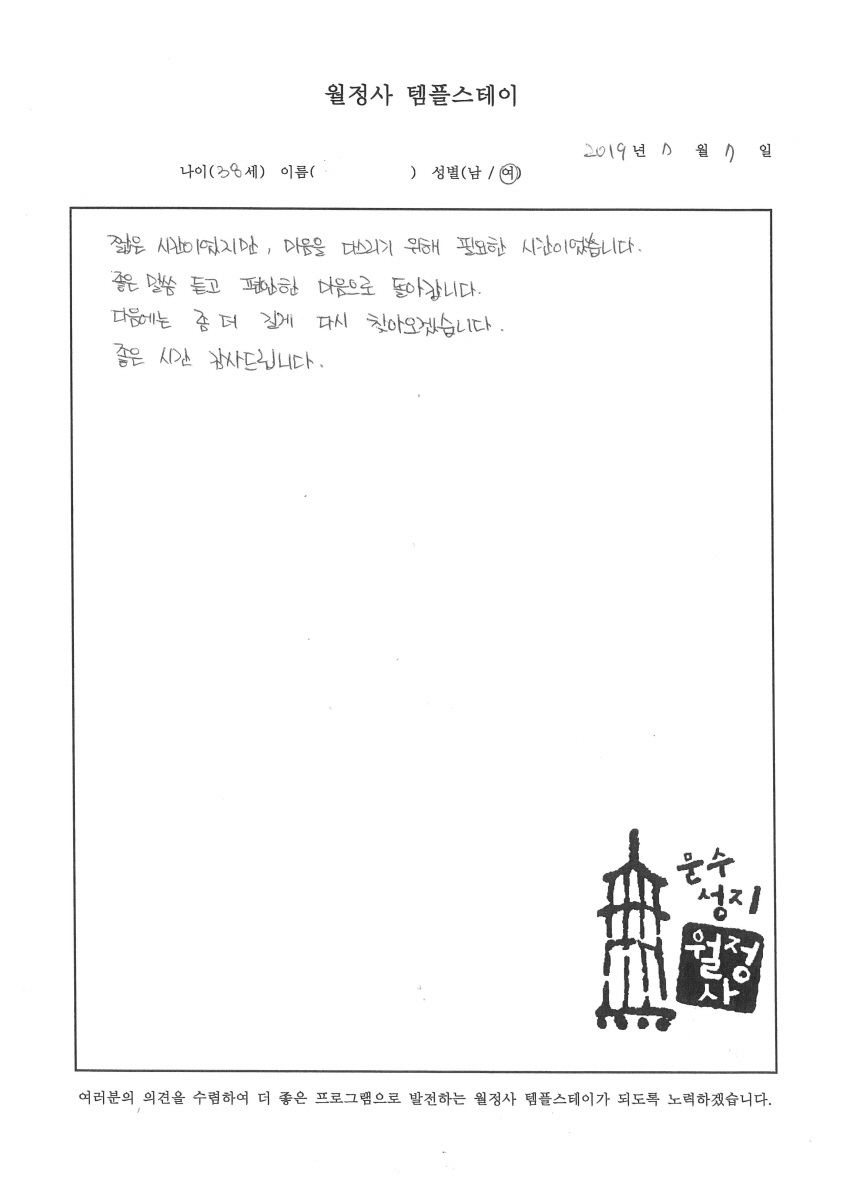 월정사 템플스테이
2019년 7 월 7 일
나이(38세) 이름( ) 성별(남 / 여)
짧은 시간이었지만, 마음을 다스리기 위해 필요한 시간이었습니다.
좋은 말씀 듣고 편안한 마음으로 돌아갑니다.
다음에는 좀 더 길게 다시 찾아오겠습니다.
좋은 시간 감사드립니다.
문수
성지
월정
사
여러분의 의견을 수렴하여 더 좋은 프로그램으로 발전하는 월정사 템플스테이가 되도록 노력하겠습니다.